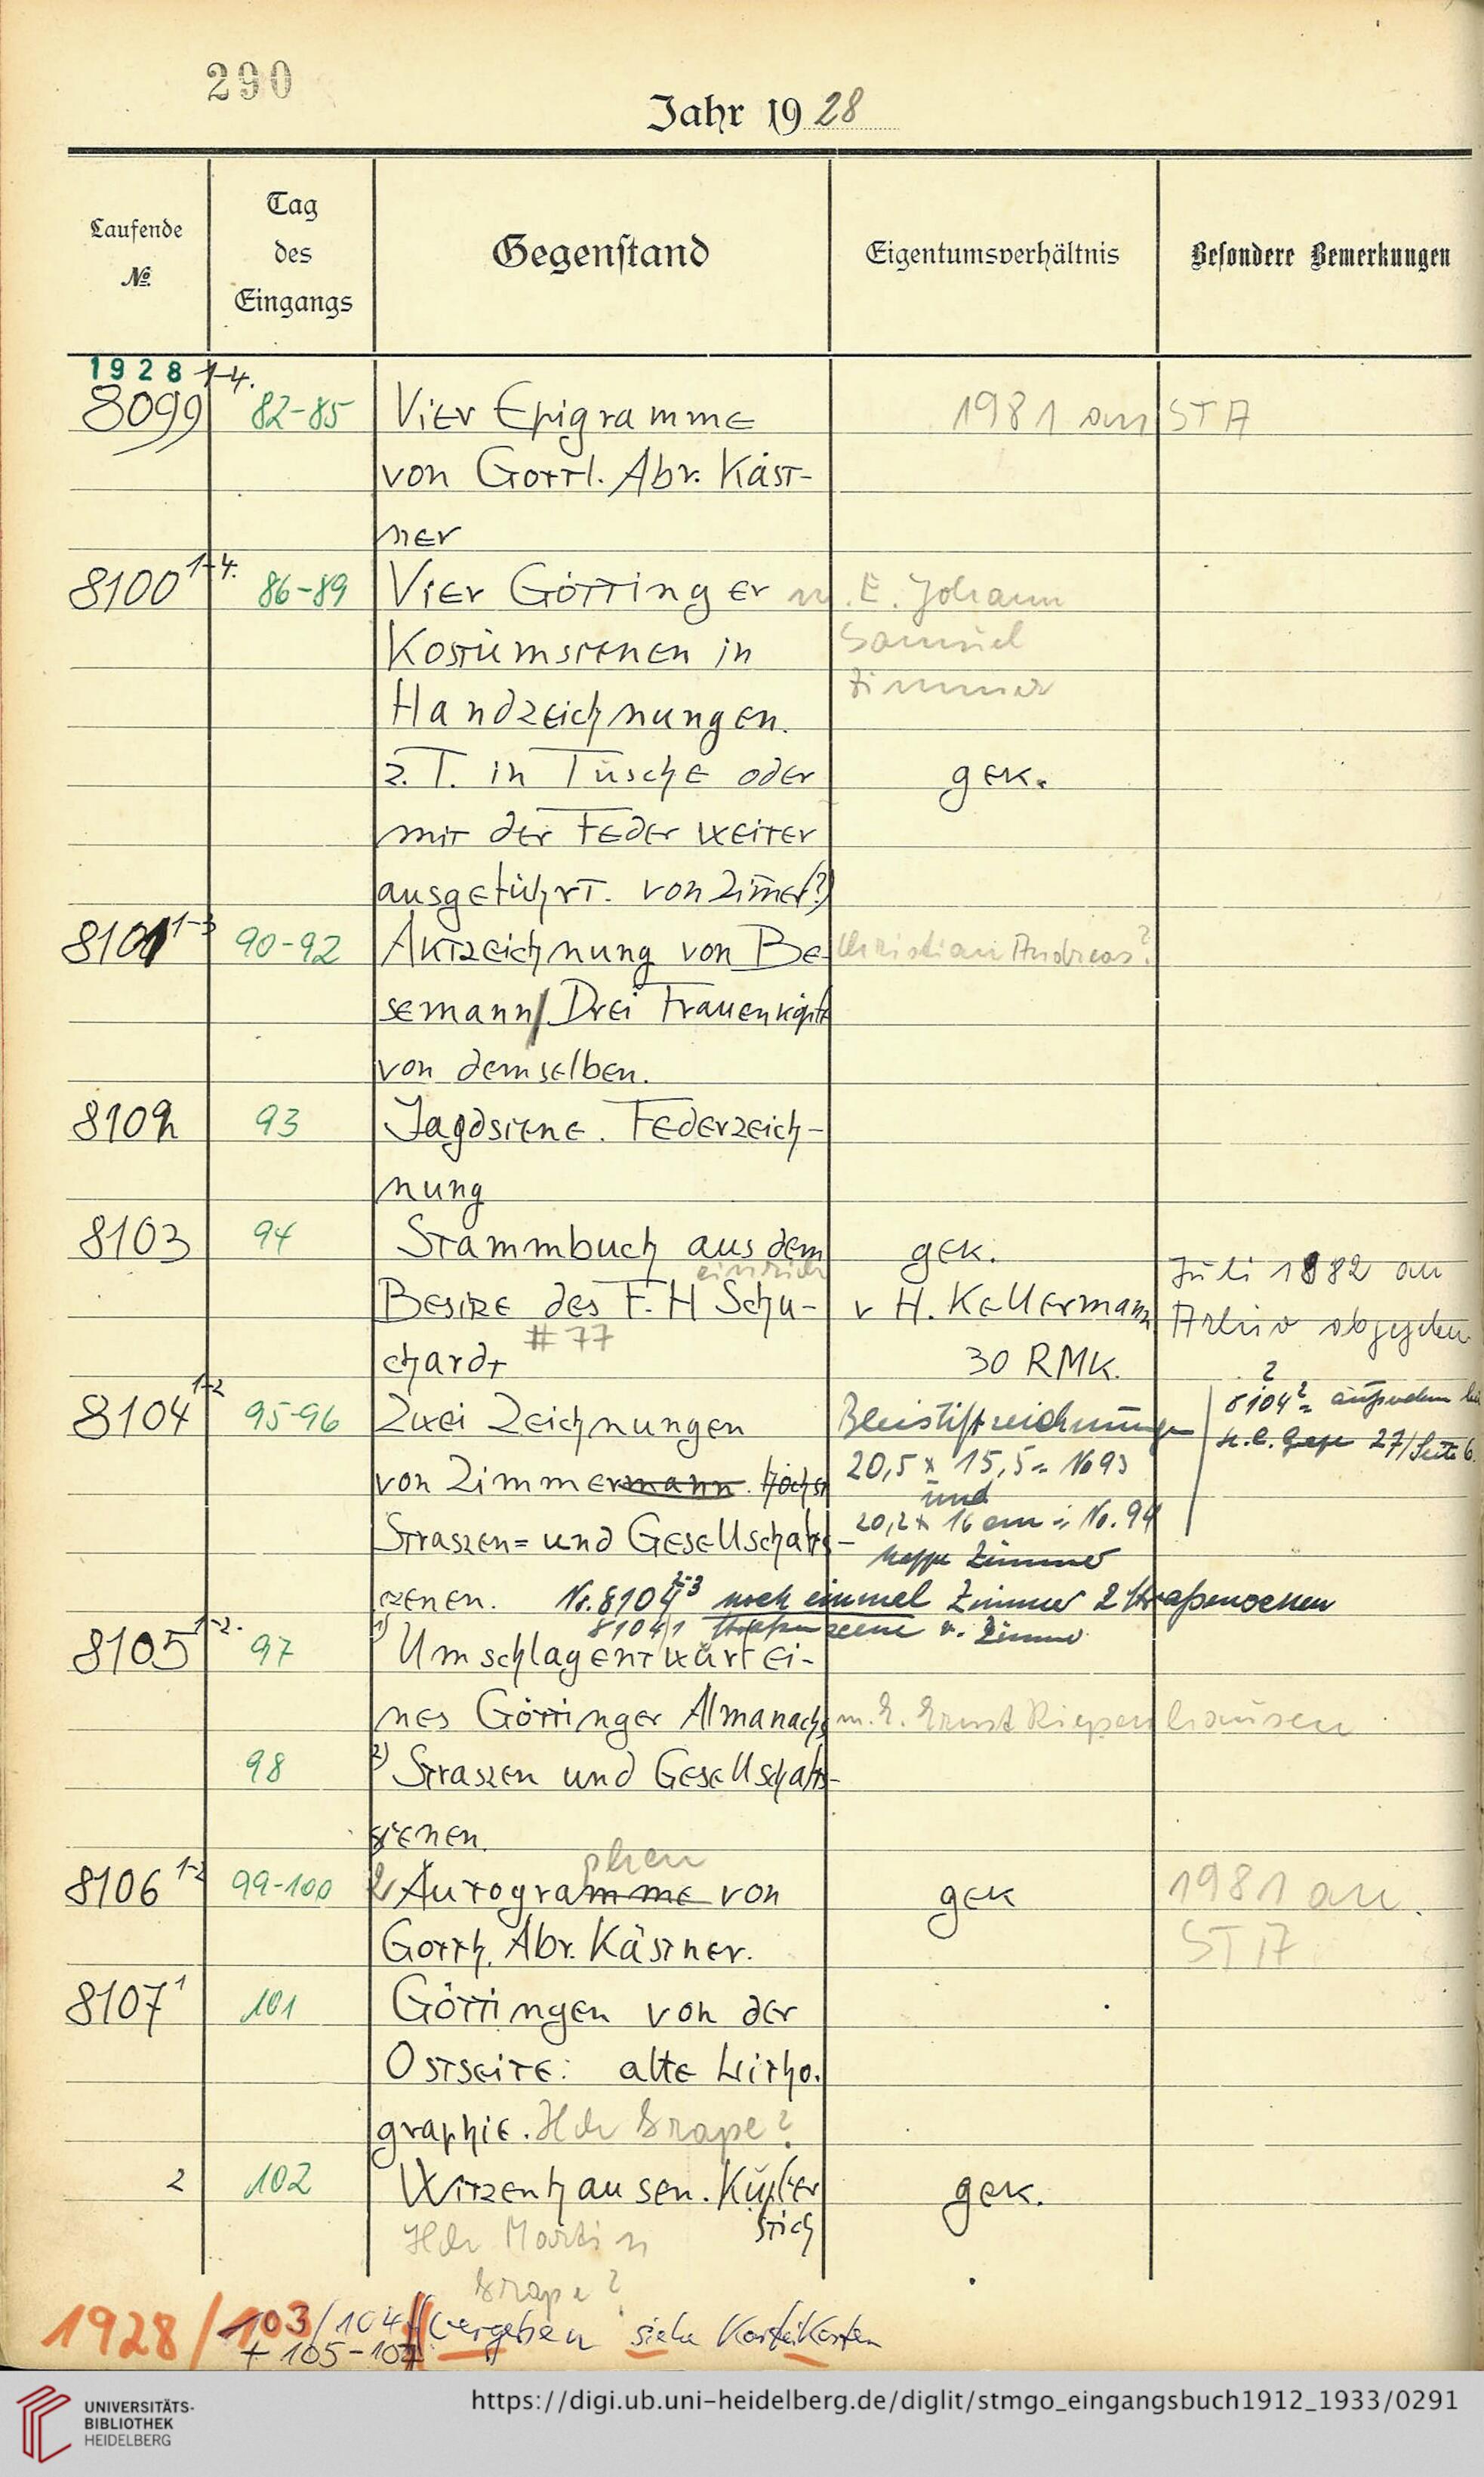 290
Jahr 1928
Laufende
№
Tag
des
Eingangs
Gegenſtand
Eigentumsverhältnis
Beſondere Bemerkungen
1928
8099 1-4. 82-85 Vier Epigramme 1981 an STA
von Gottl. Abr. Käst-
ner
8100 1-4. 86-89 Vier Göttinger m. E. Johann
Kostümscenen in Samuel
Handzeichnungen. Zimmer
z. T. in Tusche oder gek.
mit der Feder weiter
ausgeführt. von Zimer(?)
8101 1-3 90-92 Aktzeichnung von Be- Christian Andreas?
semann/ Drei Frauenköpfe
von demselben.
8102 93 Jagdscene. Federzeich-
nung
8103 94 Stammbuch aus dem gek.
einrich
Juli 1982 an
Besitze des F. H Schu- v H. Kellermann Archiv abgegeben
# 77
chardt 30 RMK.
8104 1-2 95-96 Zwei Zeichnungen Bleistiftzeichnungen 8104² =
27/Seite 6.
von Zimmermann. Höchst 20,5 x 15,5 = No 93
und
Straszen= und Gesellschafts- 20,2 x 16 cm = No. 94
Zimmer
szenen. Nr. 8104 2-3 noch einmal Zimmer 2 Straßenscenen
8104/1 Straßenscene v. Zimmer
8105 1-2. 97 1) Umschlagentwürf ei-
nes Göttinger Almanachs m. E. Ernst Riepenhausen
98 2) Straszen und Gesellschafts-
scenen.
phen
8106 1-2 99-100 2 Autogramme von gek 1981 an
Gotth. Abr. Kästner. STA
8107 1 101 Göttingen von der
Ostseite: alte Litho.
graphie. Hch Grape?
2 102 Witzenhausen. Kupfer gek.
stich
Hch Martin
Grape?
1928/103/104 vergeben siehe Karteikarten
+ 105-107
UNIVERSITÄTS-
BIBLIOTHEK
HEIDELBERG
https://digi.ub.uni-heidelberg.de/diglit/stmgo_eingangsbuch1912_1933/0291